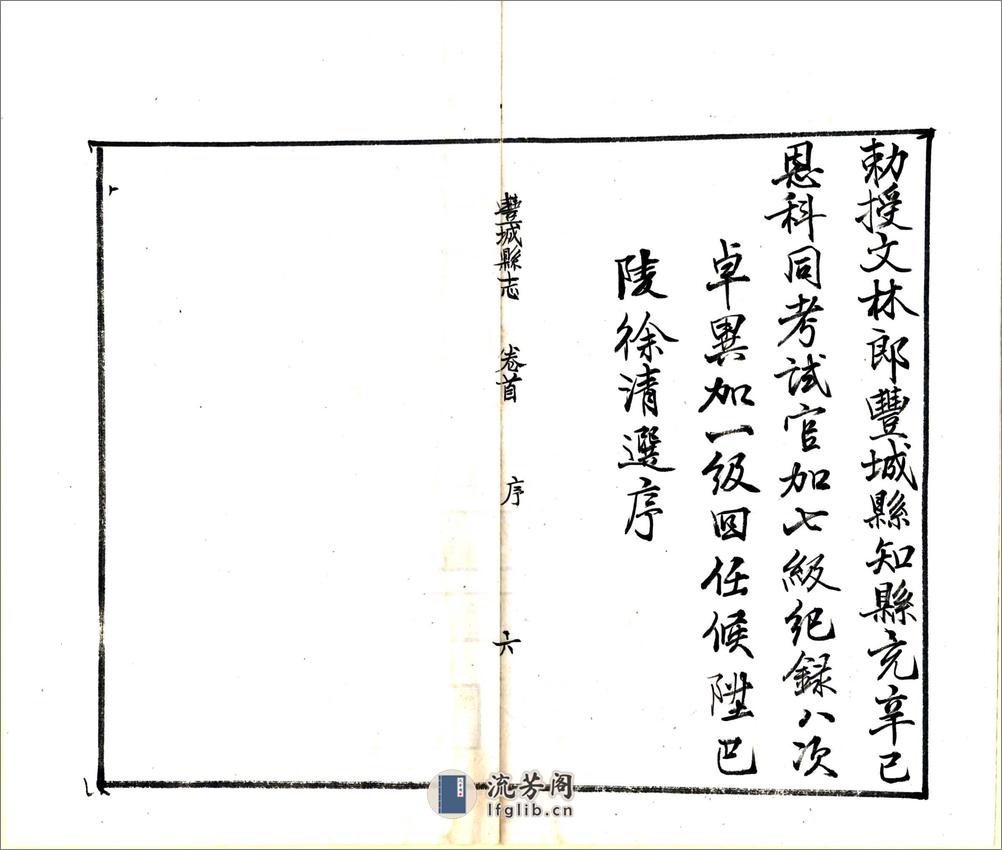 勅授文林郎豐城縣知縣充辛巳
恩科同考試官加七級紀録八次
卓異加一級回任候陞巴
陵徐清選序
豐城縣志 卷首 序 六
流芳阁
lfglib.cn